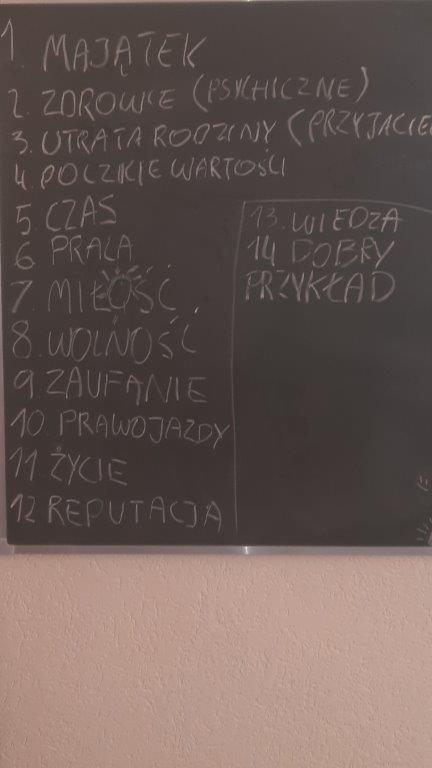 1. MAJĄTEK
2. ZDROWIE (PSYCHICZNE)
3. UTRATA RODZINY (PRZYJACIE
4. POCZUCIE WARTOŚCI
5. CZAS
6 PRACA
7. MIŁOŚĆ
8. WOLNOŚĆ
9. ZAUFANIE
10 PRAWOJAZDY
11 ŻYCIE
12 REPUTACJA
13. WIEDZA
14 DOBRY
PRZYKŁAD